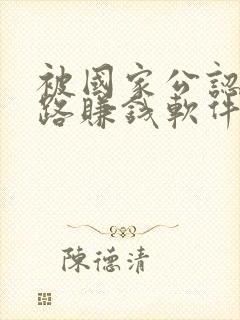 被國家公認
路賺錢軟件
陳德清